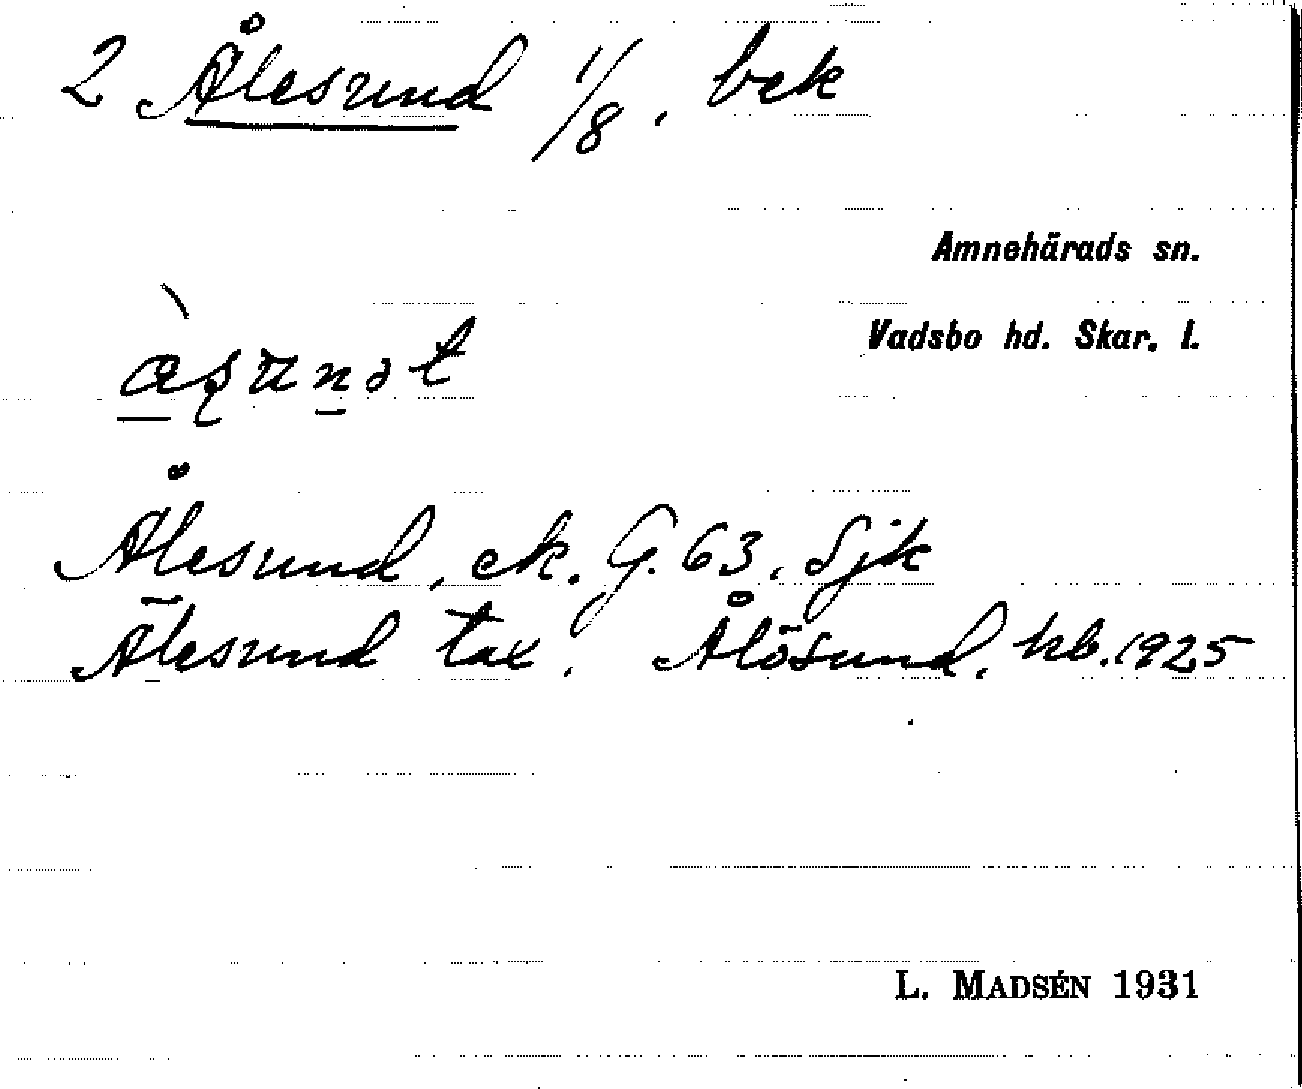 2 Ålesund 1/8, bek
Amnehärads sn.
Vadsbo hd. Skar. l.
Ålesund, ek. G. 63. Sjk
Ålesund tax. Ålösund, kb. 1925
L. MADSÉN 1931